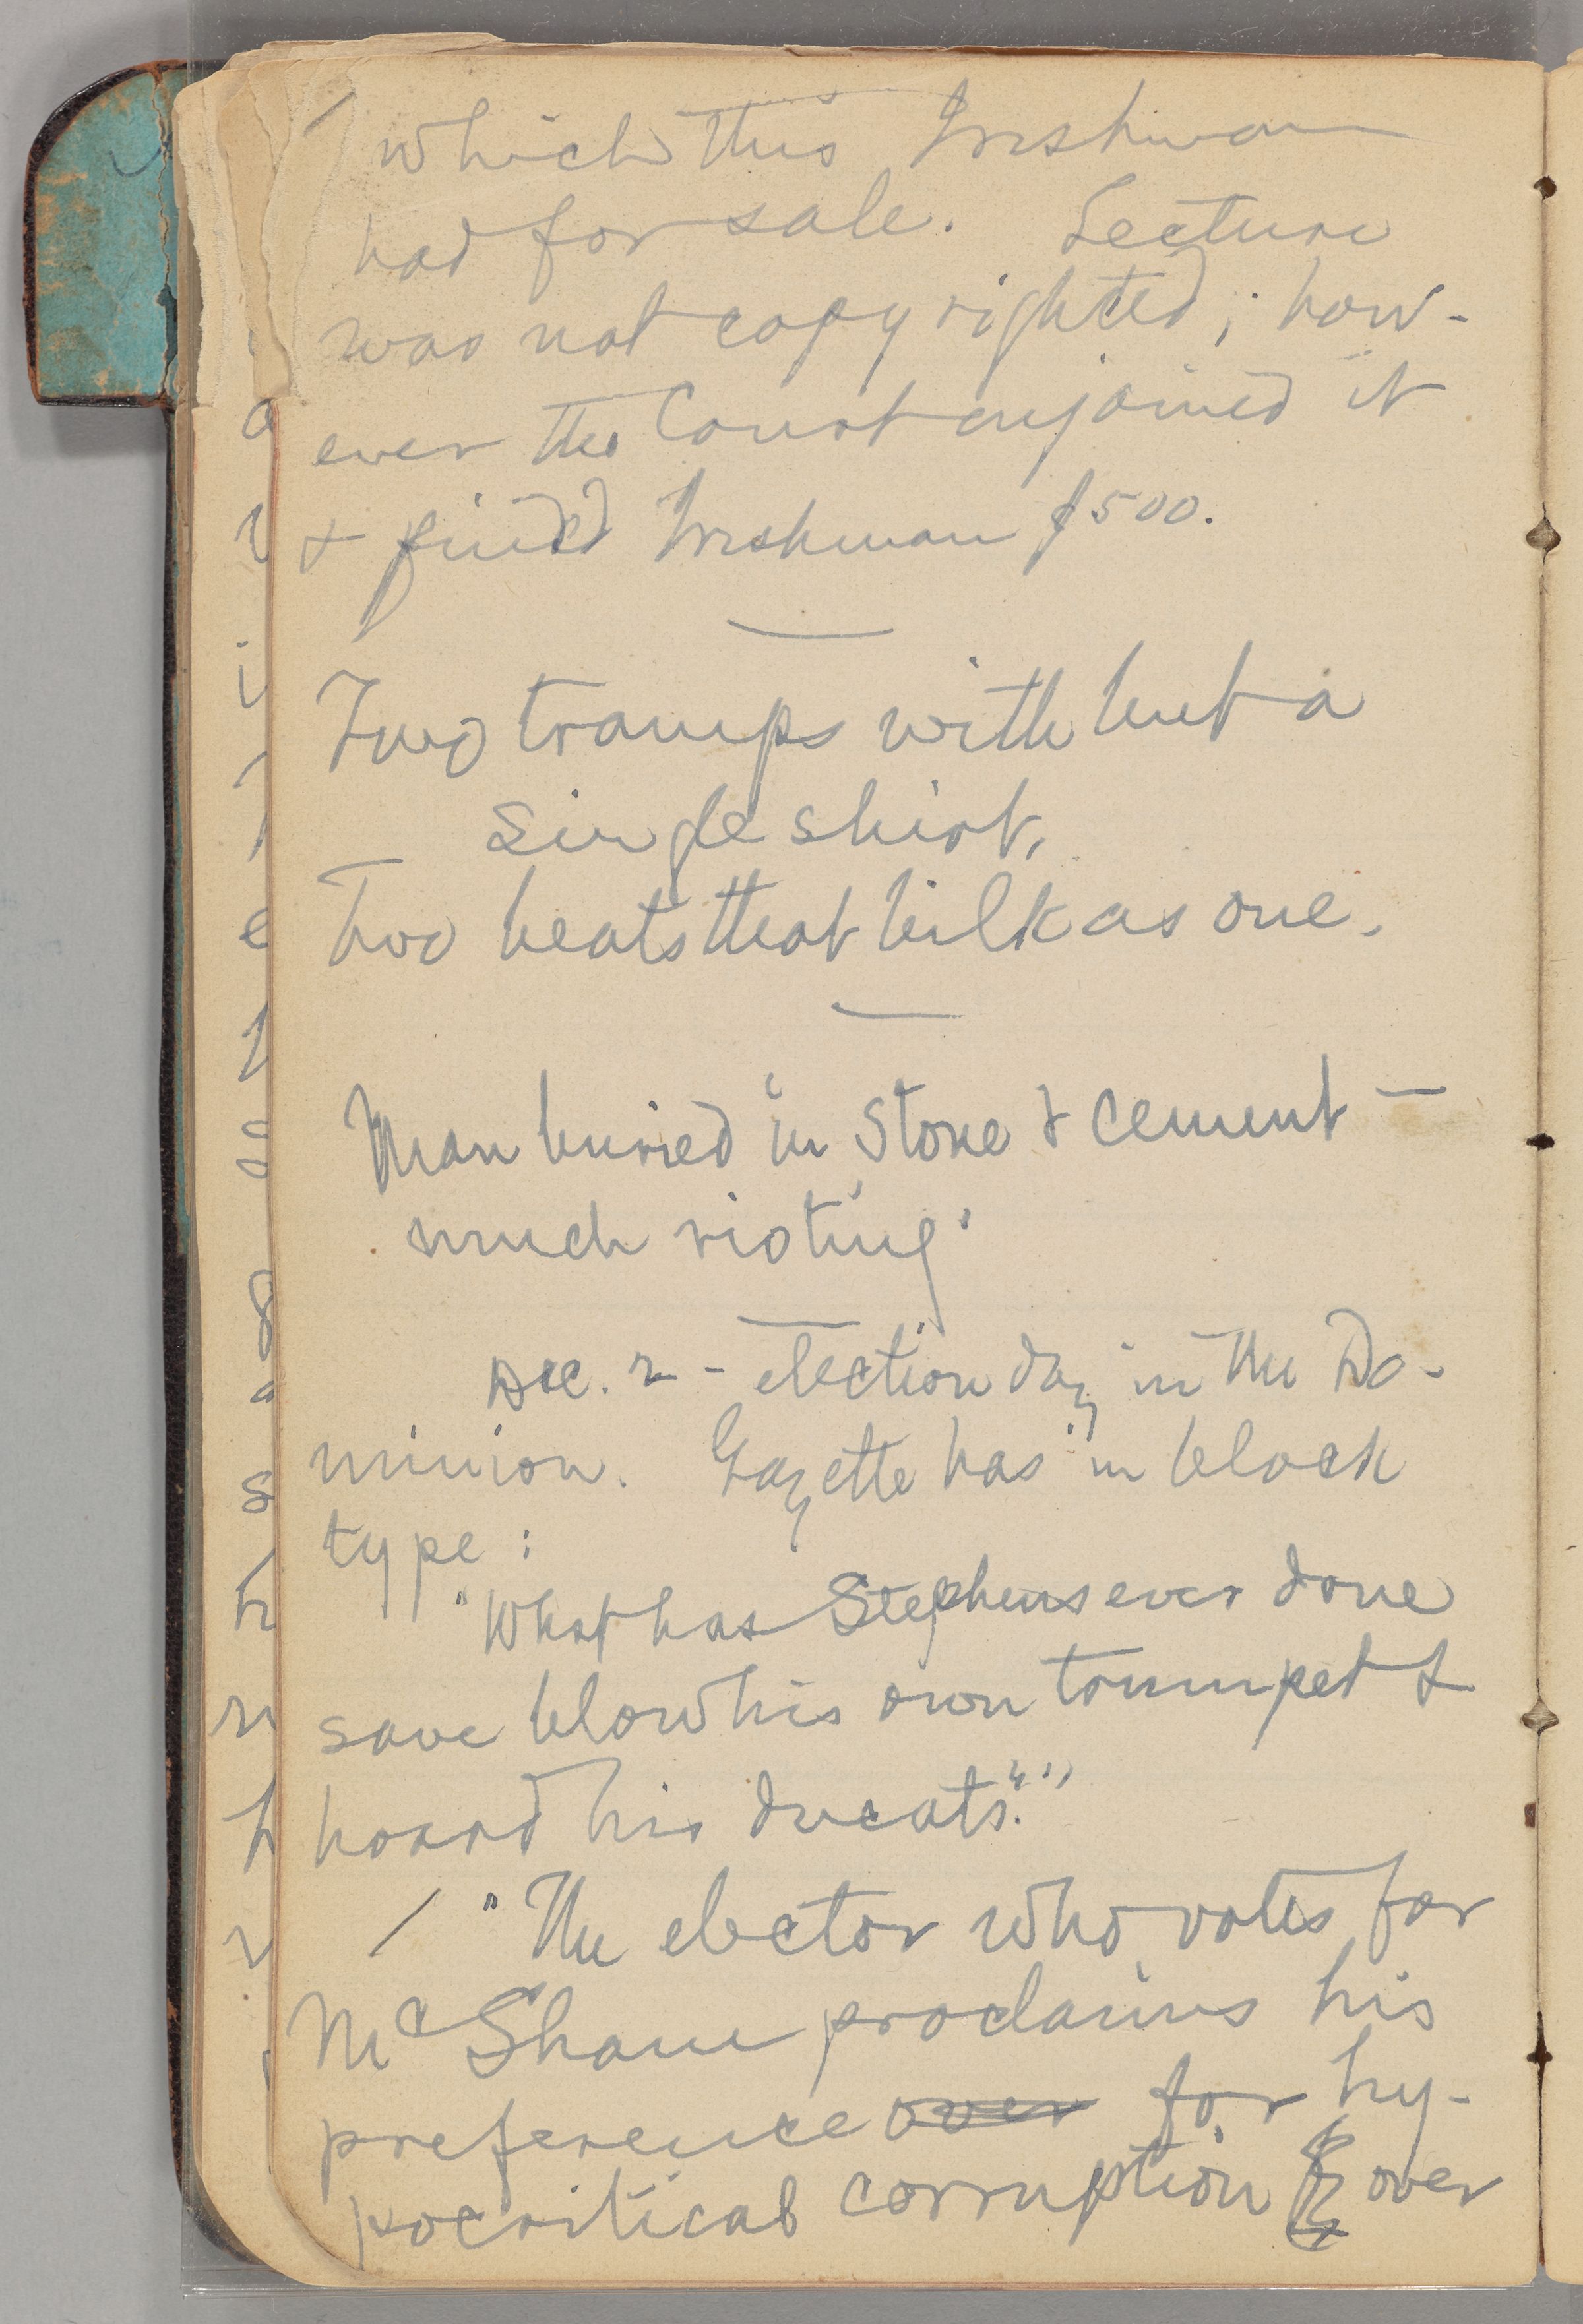 which this Irishman
had for sale. Lecture
was not copyrighted; how-
ever the Court enjoined it
& fined Irishman $500.
Two tramps with but a
single shirt,
Two beats that bilk as one.
Man buried in stone & cement —
much rioting.
Dec. 2 - election day in the Do-
minion. Gazette has in black
type:
"What has Stephens ever done
save blow his own trumpet &
hoard his ducats."
/ "The elector who votes for
McShane proclaims his
preference over for hy-
pocritical corruption over